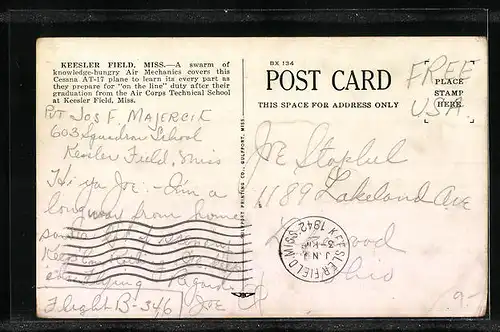 KEESLER FIELD, MISS.—A swarm of
knowledge-hungry Air Mechanics covers this
Cessna AT-17 plane to learn its every part as
they prepare for "on the line" duty after their
graduation from the Air Corps Technical School
at Keesler Field, Miss.
Pvt Jos F. Majercik
603 Squadron School
Kessler Field, Miss
Hi ya Joe:- I'm a
long way from home
Keep
everything Regards
Flight B-346 / Joe
GULFPORT PRINTING CO., GULFPORT, MISS.
BX 134
POST CARD
THIS SPACE FOR ADDRESS ONLY
FREE
USA
PLACE
STAMP
HERE
Joe Stophel
1189 Lakeland Ave
Lakewood
Ohio
KEESLER FIELD, MISS.
1942
9-